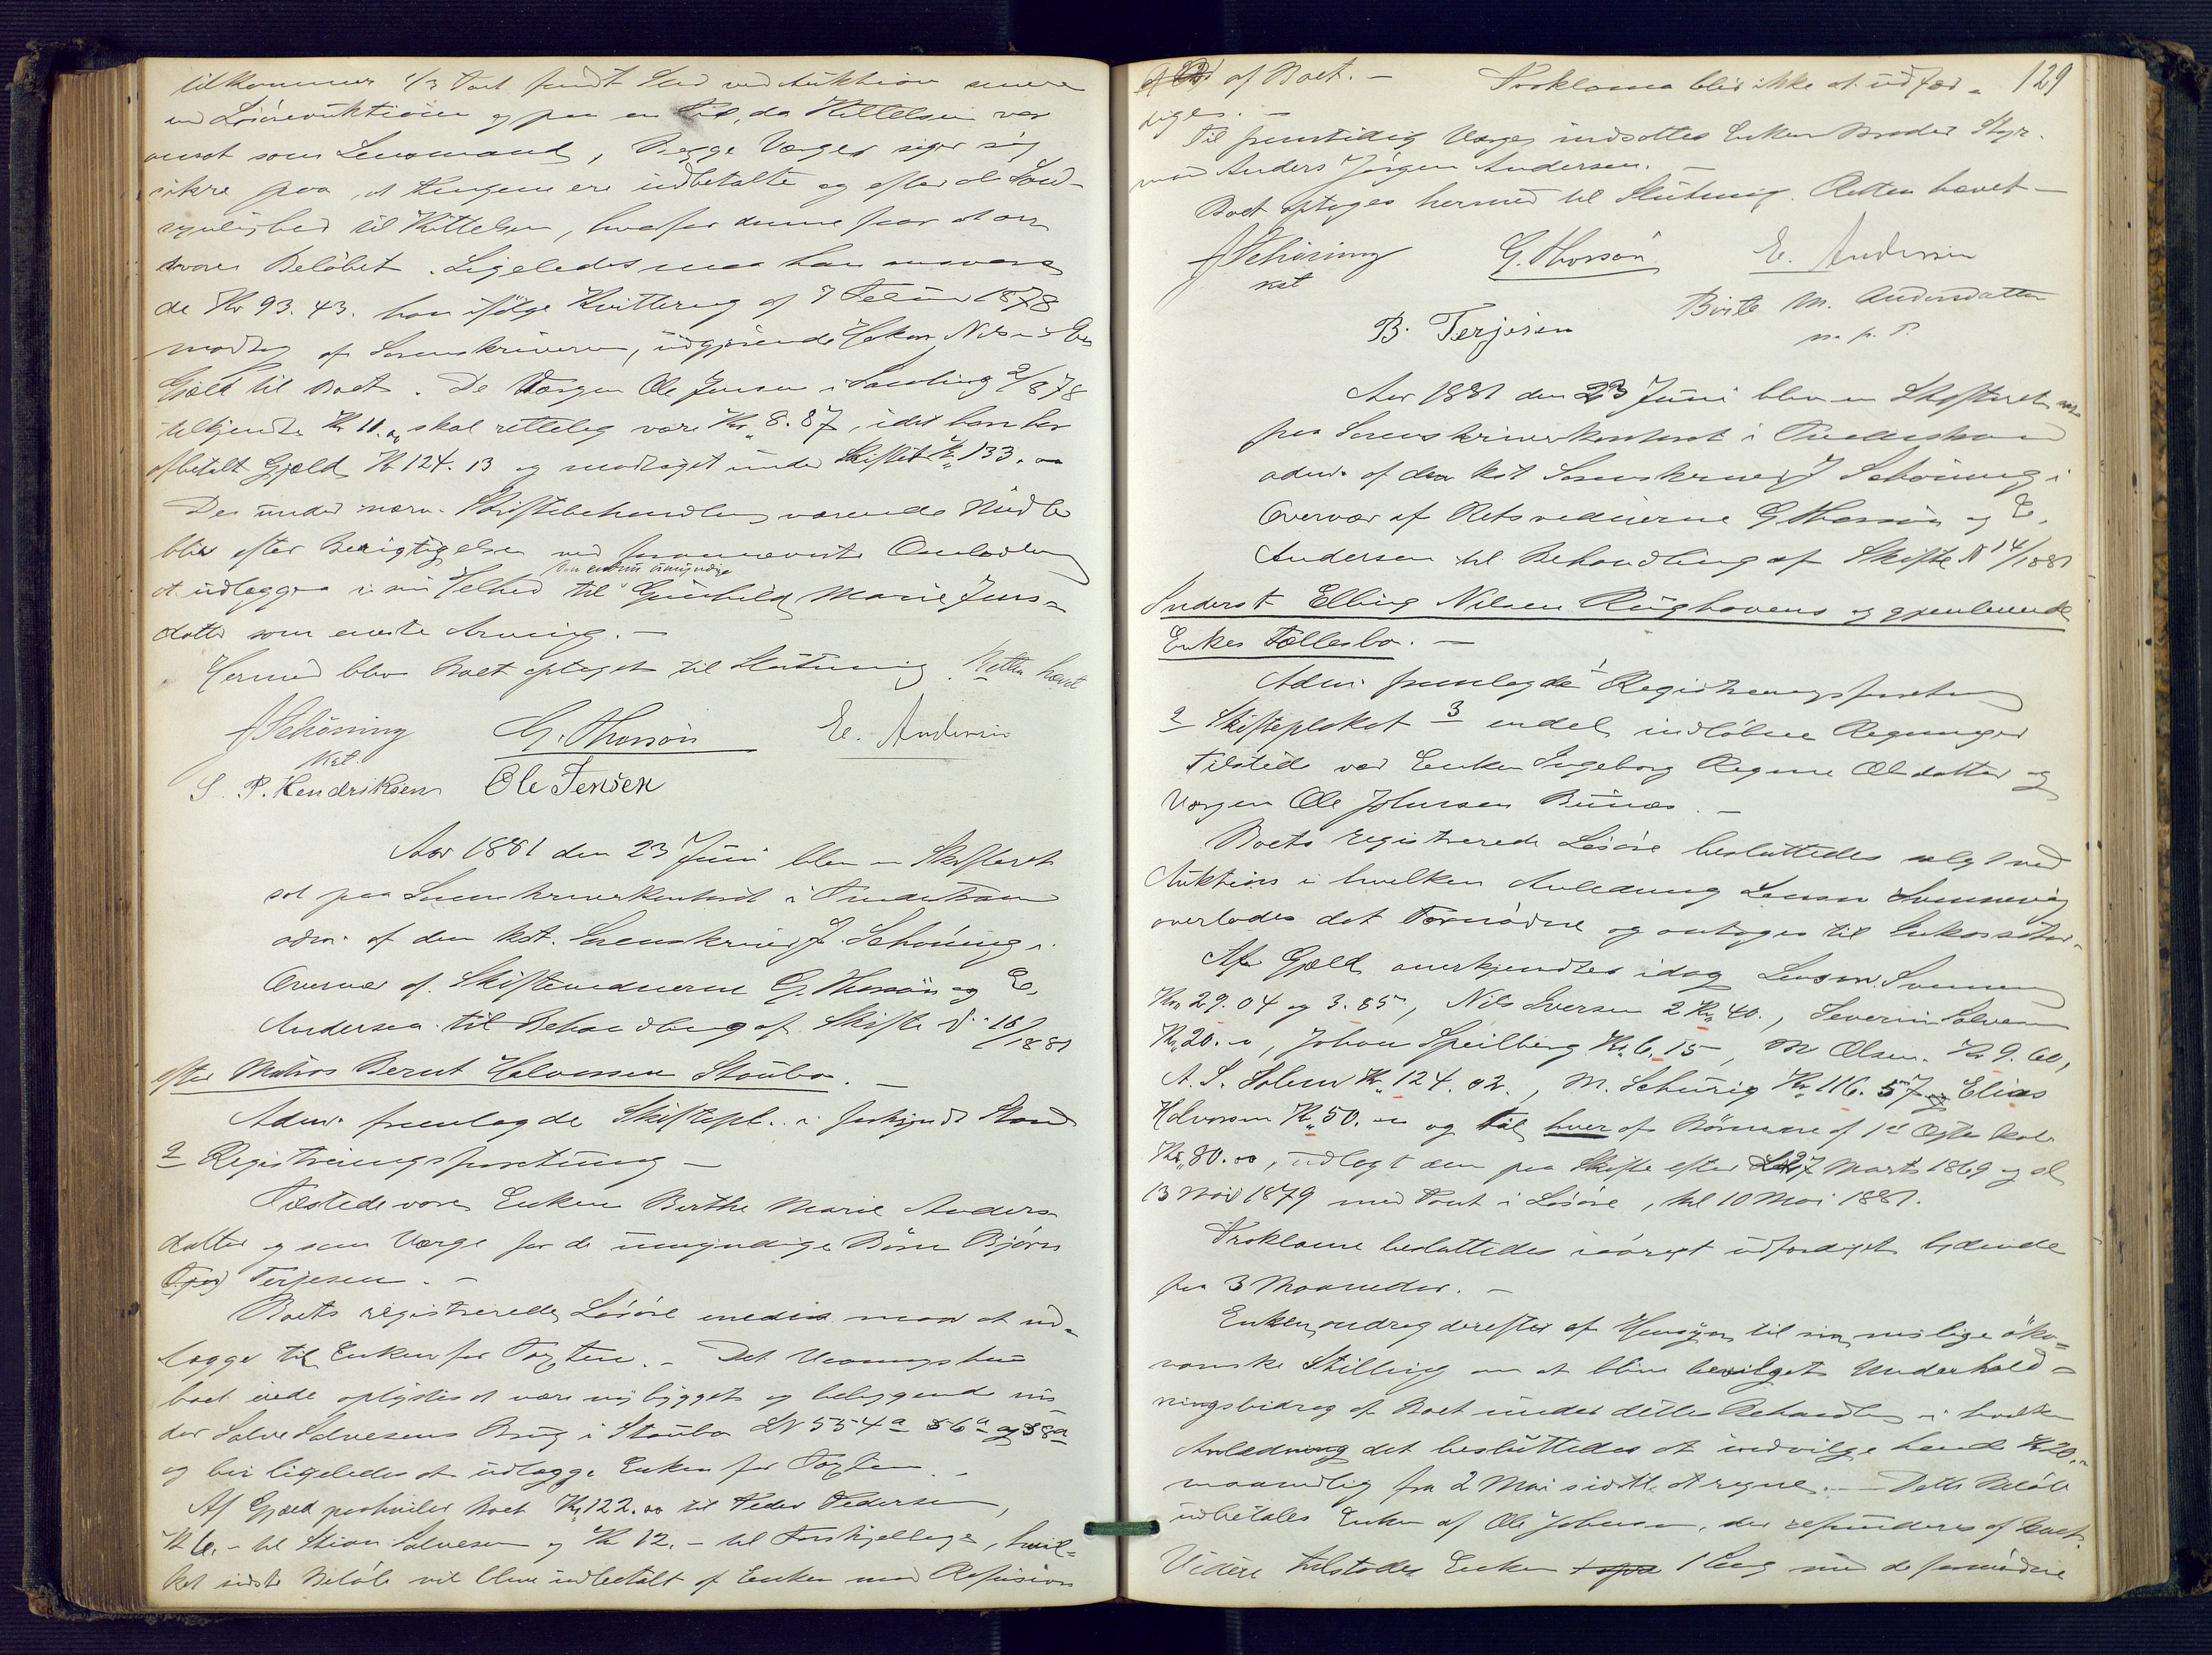 tilkommer 1/3 Part fandt Sted ved Auktion senere
end Løsøreauktionen og paa en Tid, da Kittelsen var
ansat som Lensmand, Begge Værger siger sig
sikre paa, at Pengene ere indbetalte og efter al Sand-
synlighed til Kittelsen, hvorfor denne faar at an
svare Beløbet. Ligeledes maa han ansvare
de Kr 93. 43. han ifølge Kvittering af 7 Februar 1878
modtog af Sorenskriveren, udgjørende Hakon Nilsens
Gjæld til Boet. De Værgen Ole Jensen i Samling 2/8 78
tilkjendte Kr 11.00 skal rettelig være Kr. 8. 87, idet han har
afbetalt Gjæld Kr 124. 13 og modtaget under Skiftet Kr. 133. 00
Der under nærv. Skiftebehandling værende Midler
bliver efter Berigtigelsen ved Omlodning
den endnu umyndige
at udlægges i sin Helhed til Gunhild Marie Jens-
datter som eneste Arving. —
Hermed blev Boet optaget til Slutning. Retten hævet
J Schöning
kst.
G. Thorsön
E. Andersen
S. P. Hendriksen Ole Jensen
Aar 1881 den 23 Juni blev en Skifteret
sat paa Sorenskriverkontoret i Tvedestrand
adm. af den kst. Sorenskriver J. Schöning i
Overvær af Skiftevidnerne G. Thorsön og E.
Andersen til Behandling af Skifte No 16/1881
efter Matros Bernt Halvorsen Staubo. —
Adm. fremlagde Skiftepl. i forkyndt Stand
2 Registreringsforretning —
Tilstede vare Enken Birthe Marie Anders
datter og som Værge for de umyndige Børn Bjørn
Terjesen. —
Boets registrerede Løsøre enedes man at ud-
lægge til Enken for Taxten. — Det Vaaningshus
boet eiede oplystes at være nybygget og beliggende un
der Salve Salvesens Brug i Staubo LN 554a 56a og 58a
og bir ligeledes at udlægge Enken for Taxten. —
Af Gjæld paahviler Boet Kr 122. 00 til Peder Pedersen,
Kr 6. – til Stian Salvesen og Kr 12. – til Forskjellige, hvil-
ket sidste Beløb vil blive indbetalt af Enken mod Refusion
129
af Boet. — Proklama blir ikke at udfær-
diges. —
Til fremtidig Værge indsattes Enkens Broder Styr-
mand Anders Jörgen Andersen. —
Boet optages hermed til Slutning. Retten hævet —
J Schöning
kst
G. Thorsön
E. Andersen
B. Terjesen
Birte M. Andersdatter
m. p. P.
Aar 1881 den 23 Juni blev en Skifteret sat
paa Sorenskriverkontoret i Tvedestrand
adm. af den kst Sorenskriver J Schöning i
Overvær af Retsvidnerne G Thorsön og E.
Andersen til Behandling af Skifte No 14/1881
Inderst Elling Nilsen Rughavens og gjenlevende
Enkes Fællesbo. —
Adm. fremlagde 1 Registreringsforretning
2 Skifteplakat 3 endel indløbne Regninger
Tilstede var Enken Ingeborg Regine Olsdatter og
Værgen Ole Johnsen Bunæs. —
Boets registrerede Løsøre besluttedes solgt ved
Auktion i hvilken Anledning Lensm Svennevig
overlodes det Fornødne og antoges til Inkassator.
Af Gjæld anerkjendtes idag Lensm. Svennevig
Kr 29. 04 og 3. 85, Nils Iversen 2 Kr 40., Severin Salvesen
Kr. 20. –, Johan Speilberg Kr. 6. 15, M Olsen. Kr 9. 60,
A. S. Solem Kr. 124. 02., M. Schurig Kr. 116. 57 Elias
Halvorsen Kr. 50. – og til hver af Børnene af 1ste Ægteskab
Kr. 80. 00, udlagt dem paa Skifte efter 27 Marts 1869 og
13 1879 med Pant i Løsøre, til 10 Mai 1881.
Proklama besluttedes iøvrigt udfærdiget lydende
paa 3 Maaneder. —
Enken androg derefter af Hensyn til sin mislige øko-
nomiske Stilling om at blive bevilget Underhold-
ningsbidrag af Boet under dettes Behandling i hvilken
Anledning det besluttedes at indvilge hende Kr 20. –
maanedlig fra 2 Mai sidstl. at regne. — Dette Beløb
udbetales Enken af Ole Johnsen, der refunderes af Boet.
Videre tilstodes Enken 1 Seng med de fornødne